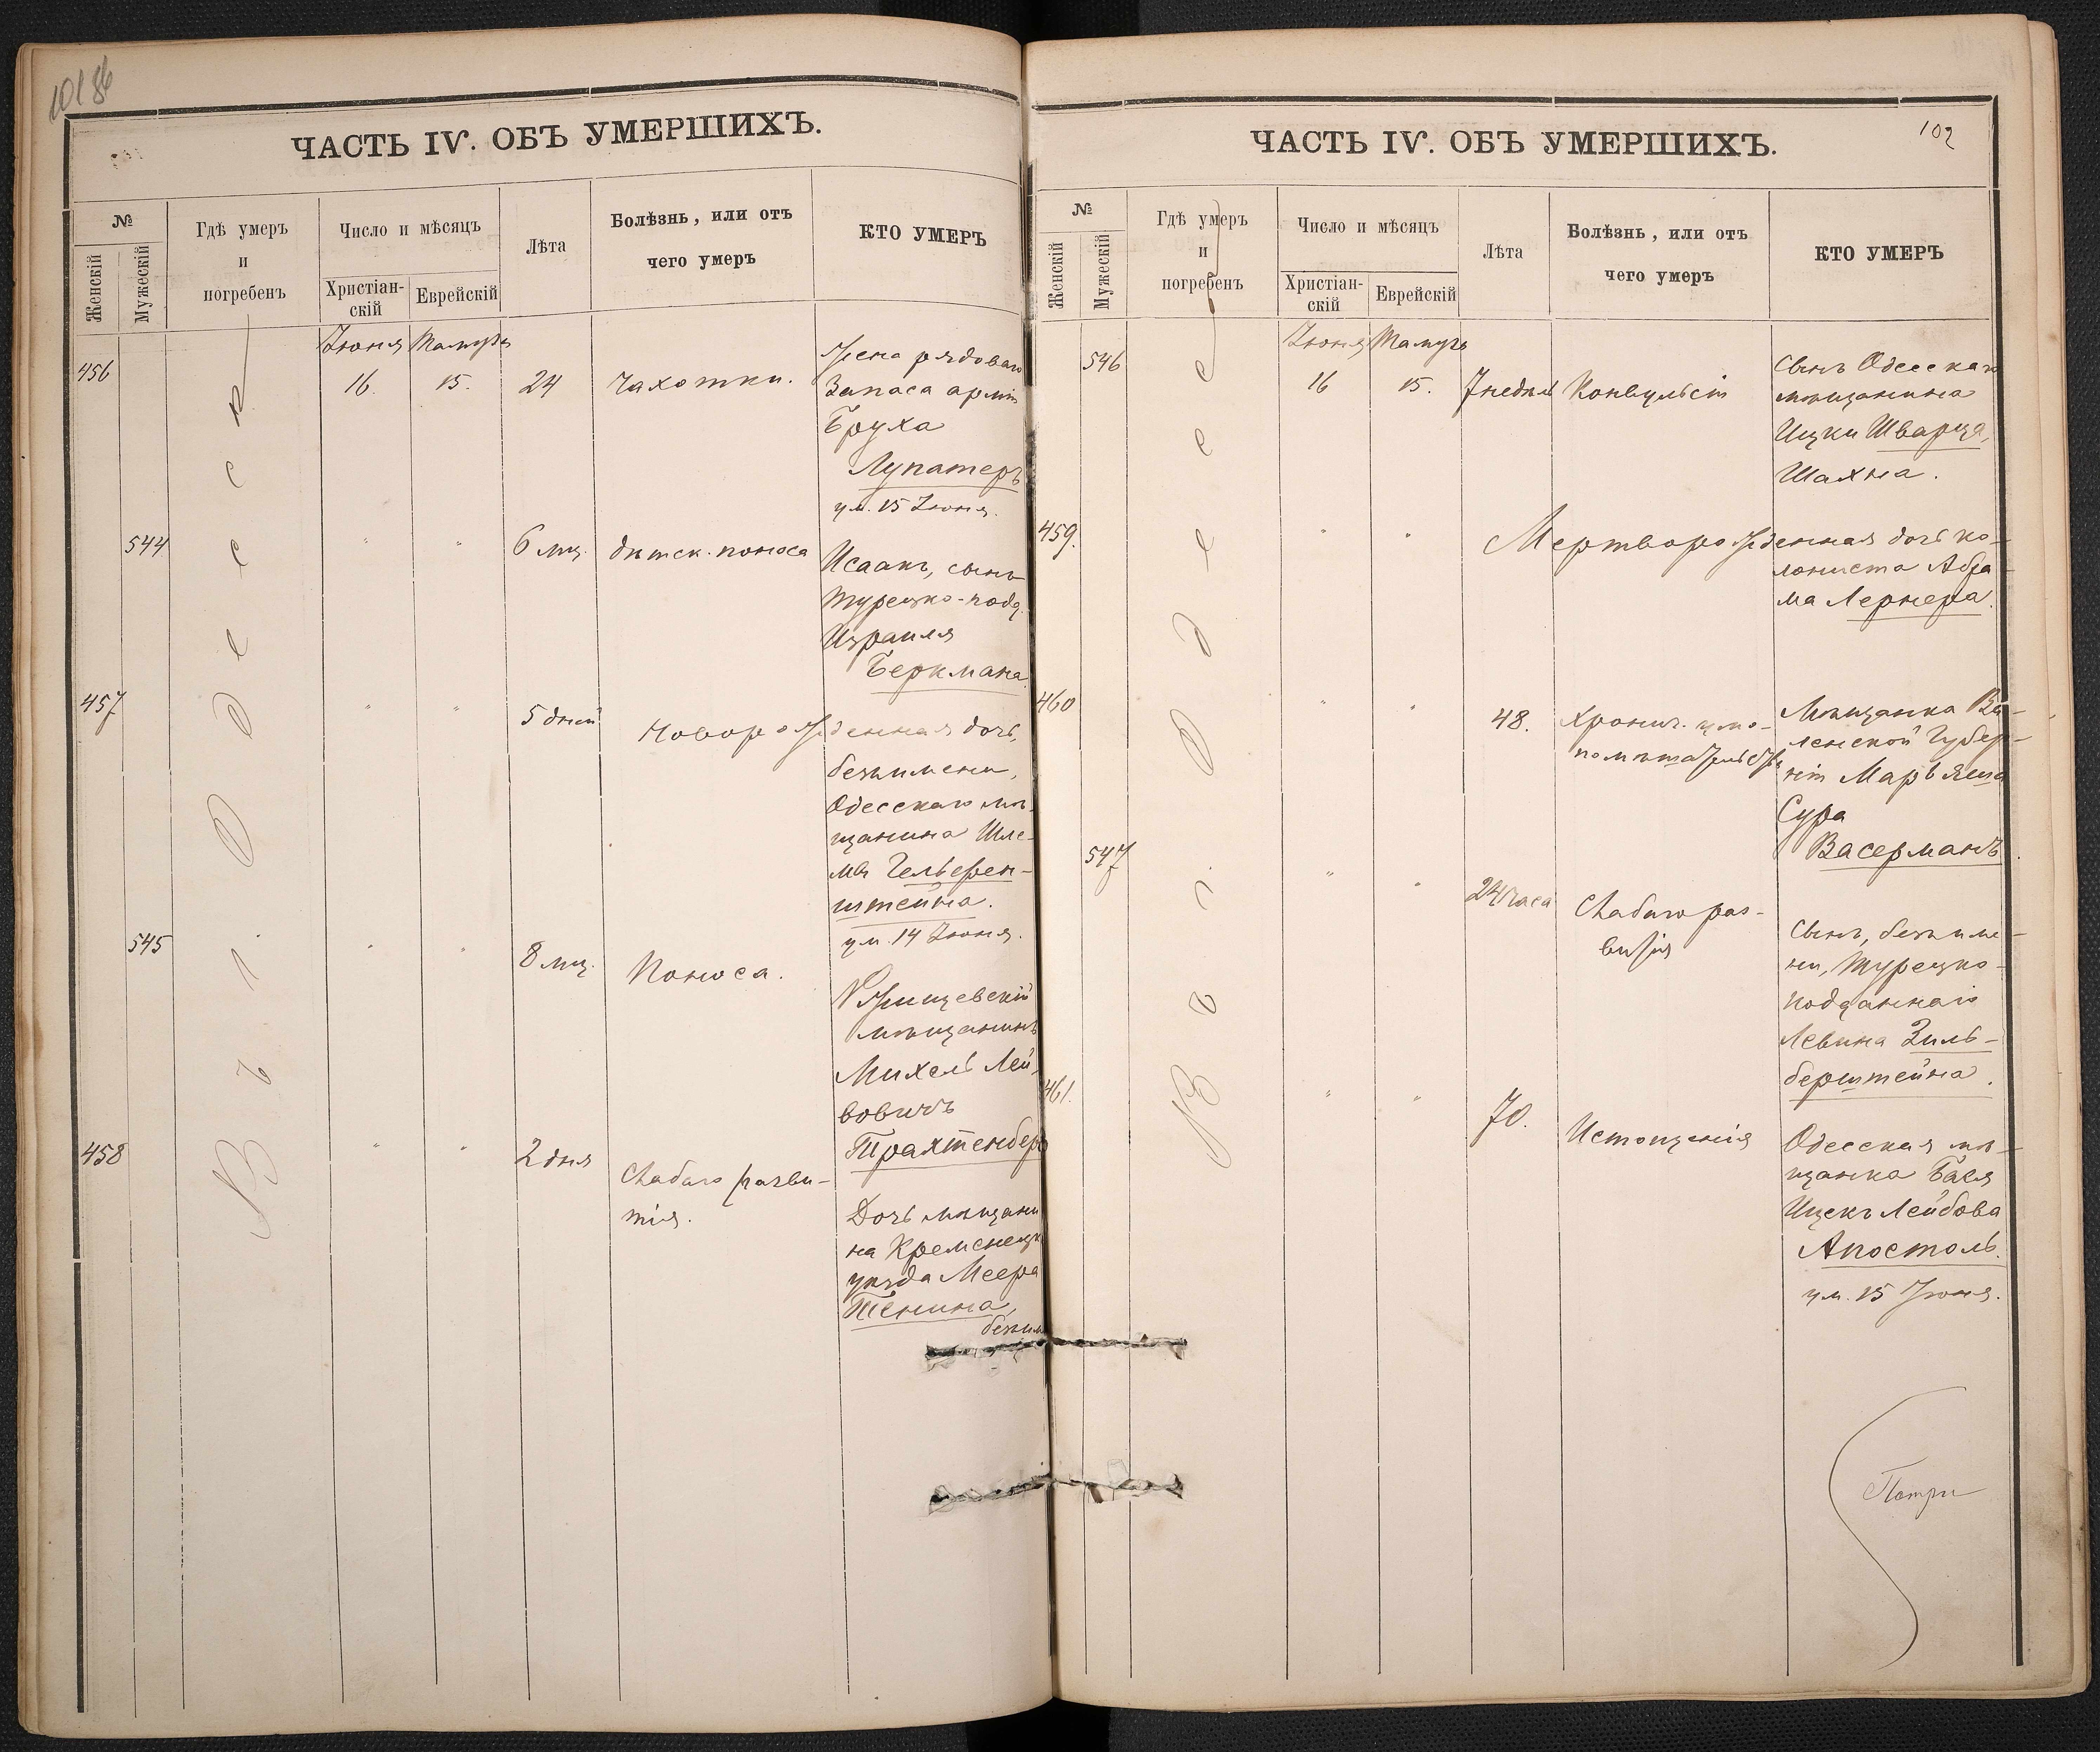 ЧАСТЬ IV. ОБЪ УМЕРШИХЪ.
№
Женскій
Мужескій
Гдѣ умеръ
и
погребенъ
Число и мѣсяцъ
Христіан-
скій
Еврейскій
Лѣта
Болѣзнь, или отъ
чего умеръ
КТО УМЕРЪ
Въ г. Одессѣ
Іюня Тамузъ
456 16. 15. 24 Чахотки. Жена рядоваго
Запаса арміи
Бруха
Лупатеръ
ум. 15 Іюня.
544 " " 6 мц. дѣтск. поноса Исаакъ, сынъ
турецко-подд.
Израиля
Беркмана
457 " " 5 дней Новорожденная дочь,
безъ имени,
Одесскаго мѣ-
щанина Шле-
мы Гельфен-
штейна.
ум. 14 Іюня.
545 " " 8 мц. Поноса.
мѣщанинъ
Михель Лей-
бовичъ
Трахтенберг
458 " " 2 дня Слабаго разви-
тія.
Дочь мѣщани
на Кременецк
уѣзда Меера
Тенина,
безъ им
ЧАСТЬ IV. ОБЪ УМЕРШИХЪ.
102
№
Женскій
Мужескій
Гдѣ умеръ
и
погребенъ
Число и мѣсяцъ
Христіан-
скій
Еврейскій
Лѣта
Болѣзнь, или отъ
чего умеръ
КТО УМЕРЪ
Въ г. Одессѣ
Іюня Тамузъ
546 16 15. 7 недѣль Конвульсіи Сынъ Одесскаго
мѣщанина
Ицки Шварца,
Шахна.
459. " " Мертворожденная дочь ко-
лониста Абра-
ма Лернера.
460 " " 48. Хронич. умо-
помѣшательства
Мѣщанка Ви-
ленской Губер-
ніи Марьяша
Сура
Васерманъ.
547 " " 24 часа Слабаго раз-
витія
Сынъ, безъ име-
ни, Турецко-
подданнаго
Левина Зиль-
берштейна.
461. " " 70. Истощенія Одесская мѣ-
щанка Бася
Ицекъ Лейбова
Апостоль.
ум. 15 Іюня.